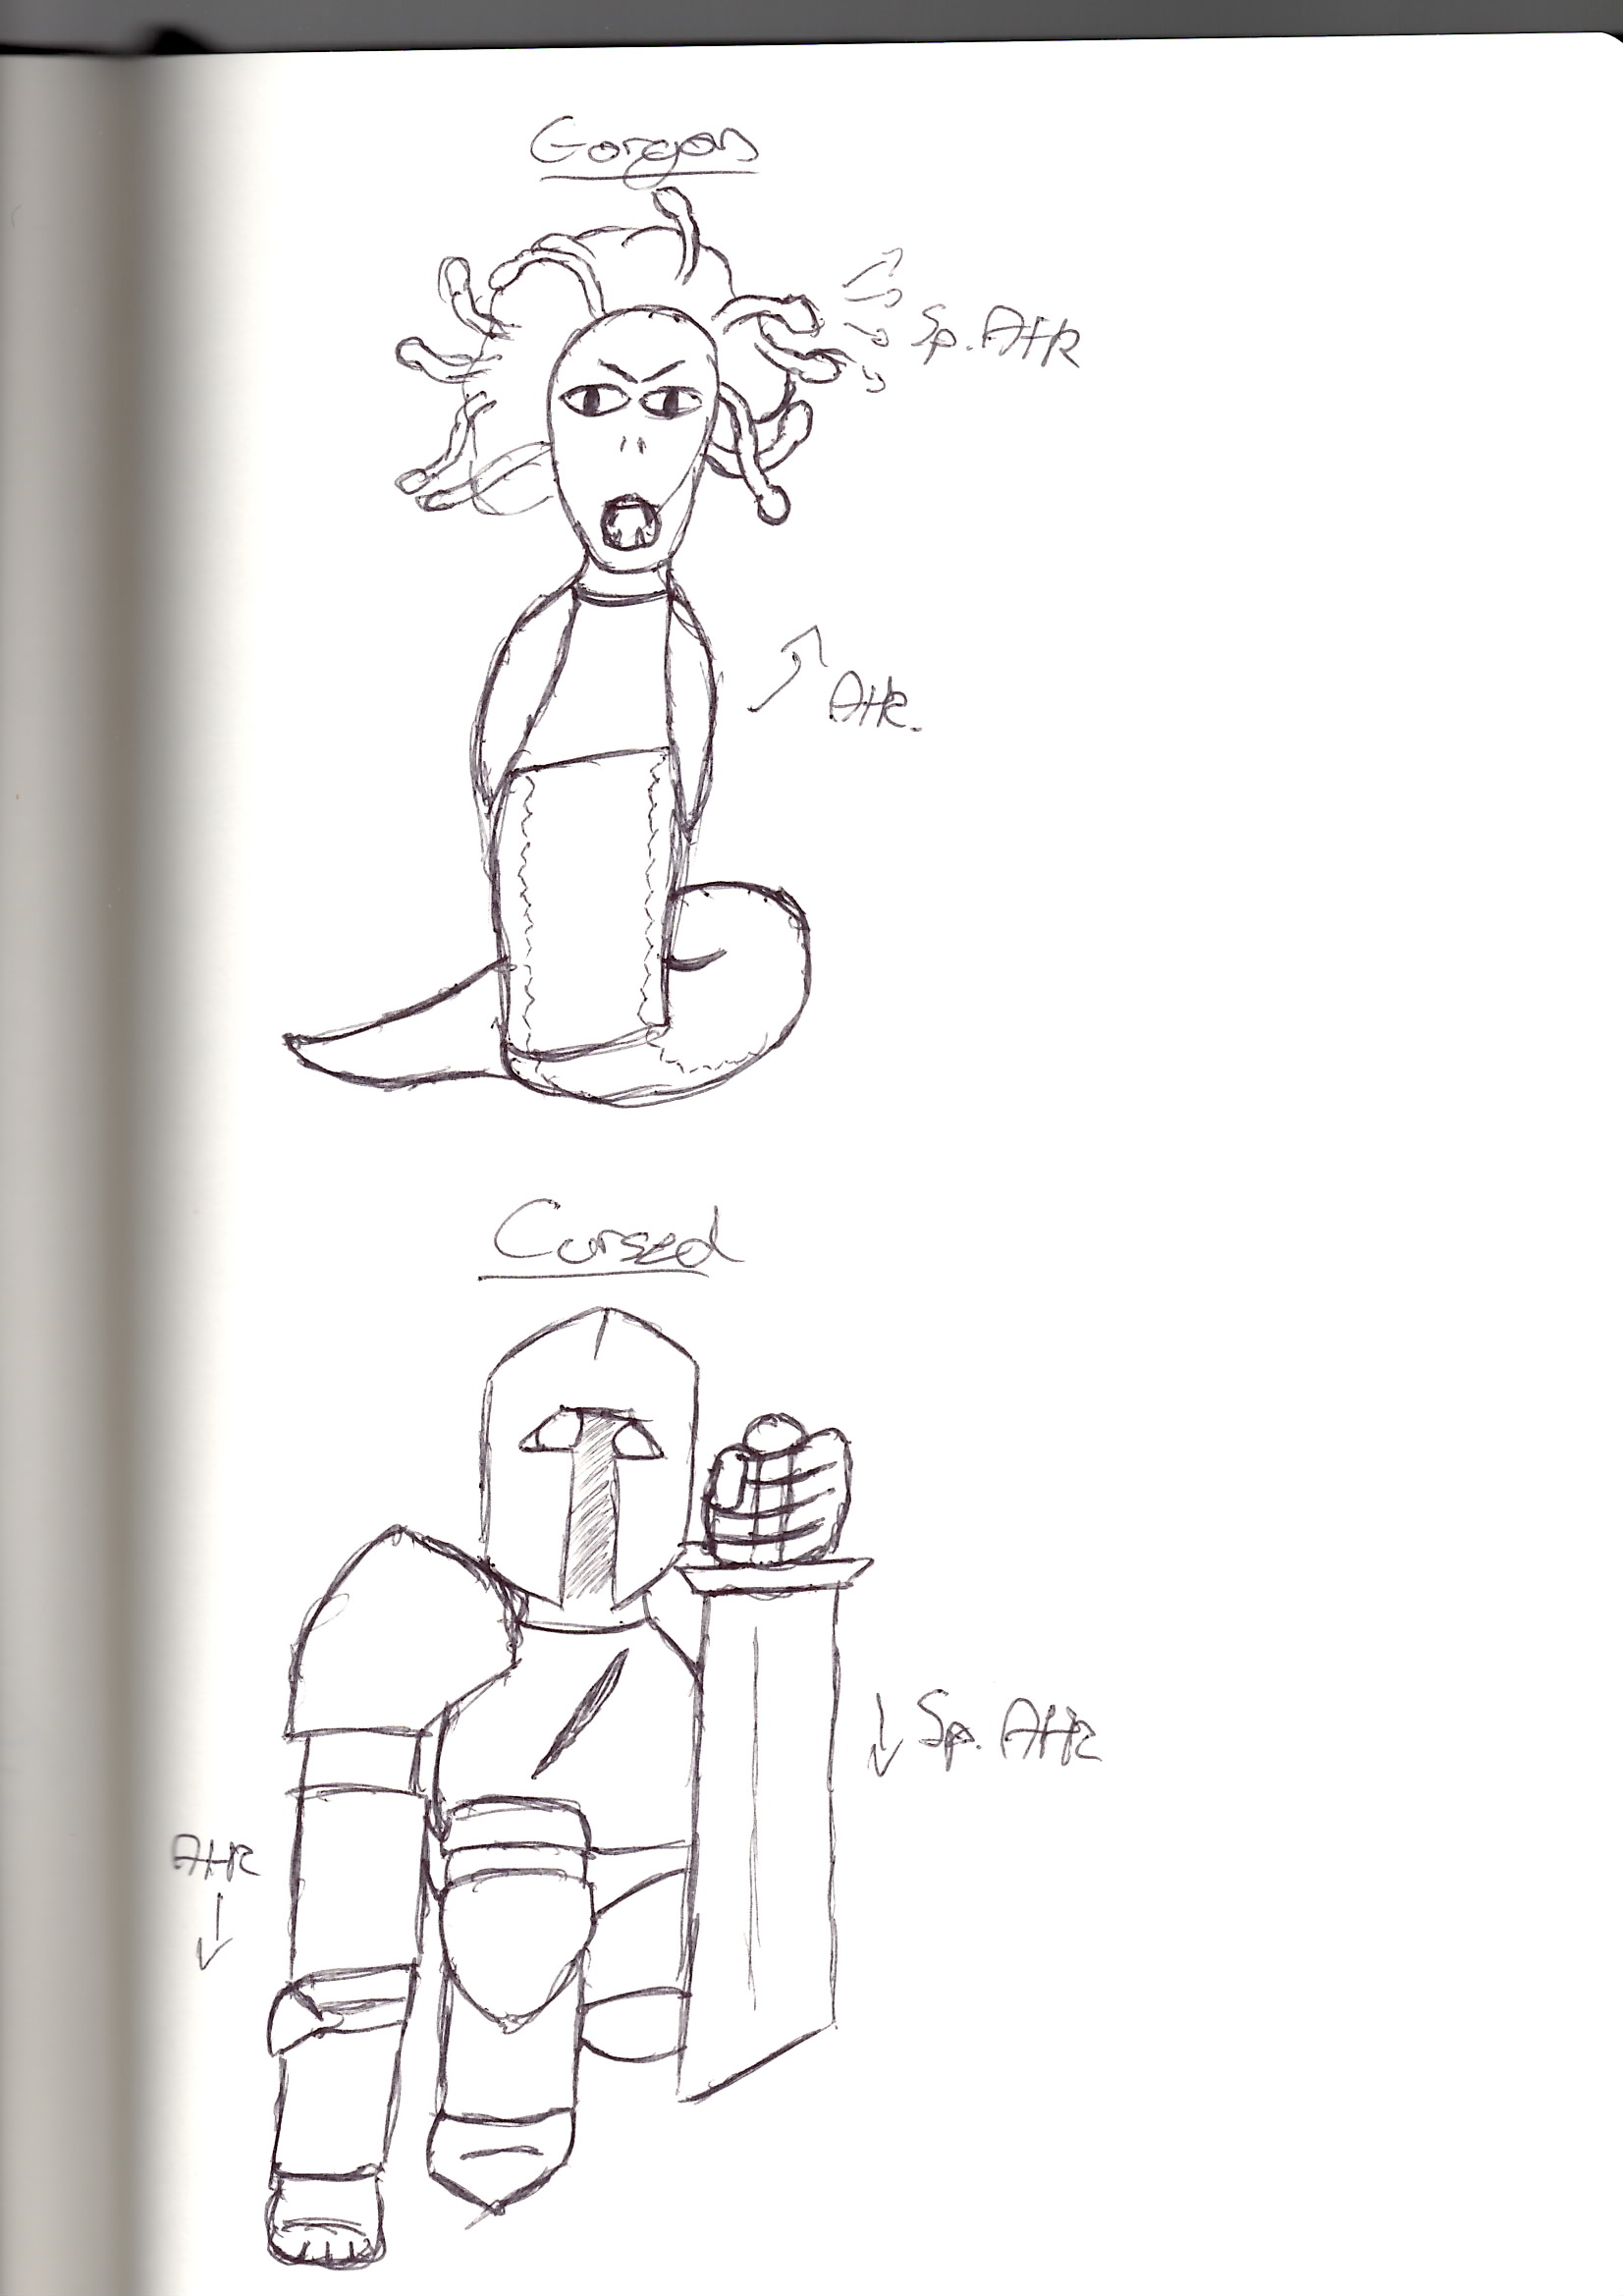 Gorgon
Sp. Attk
Attk.
Cursed
Sp. Attk
Attk